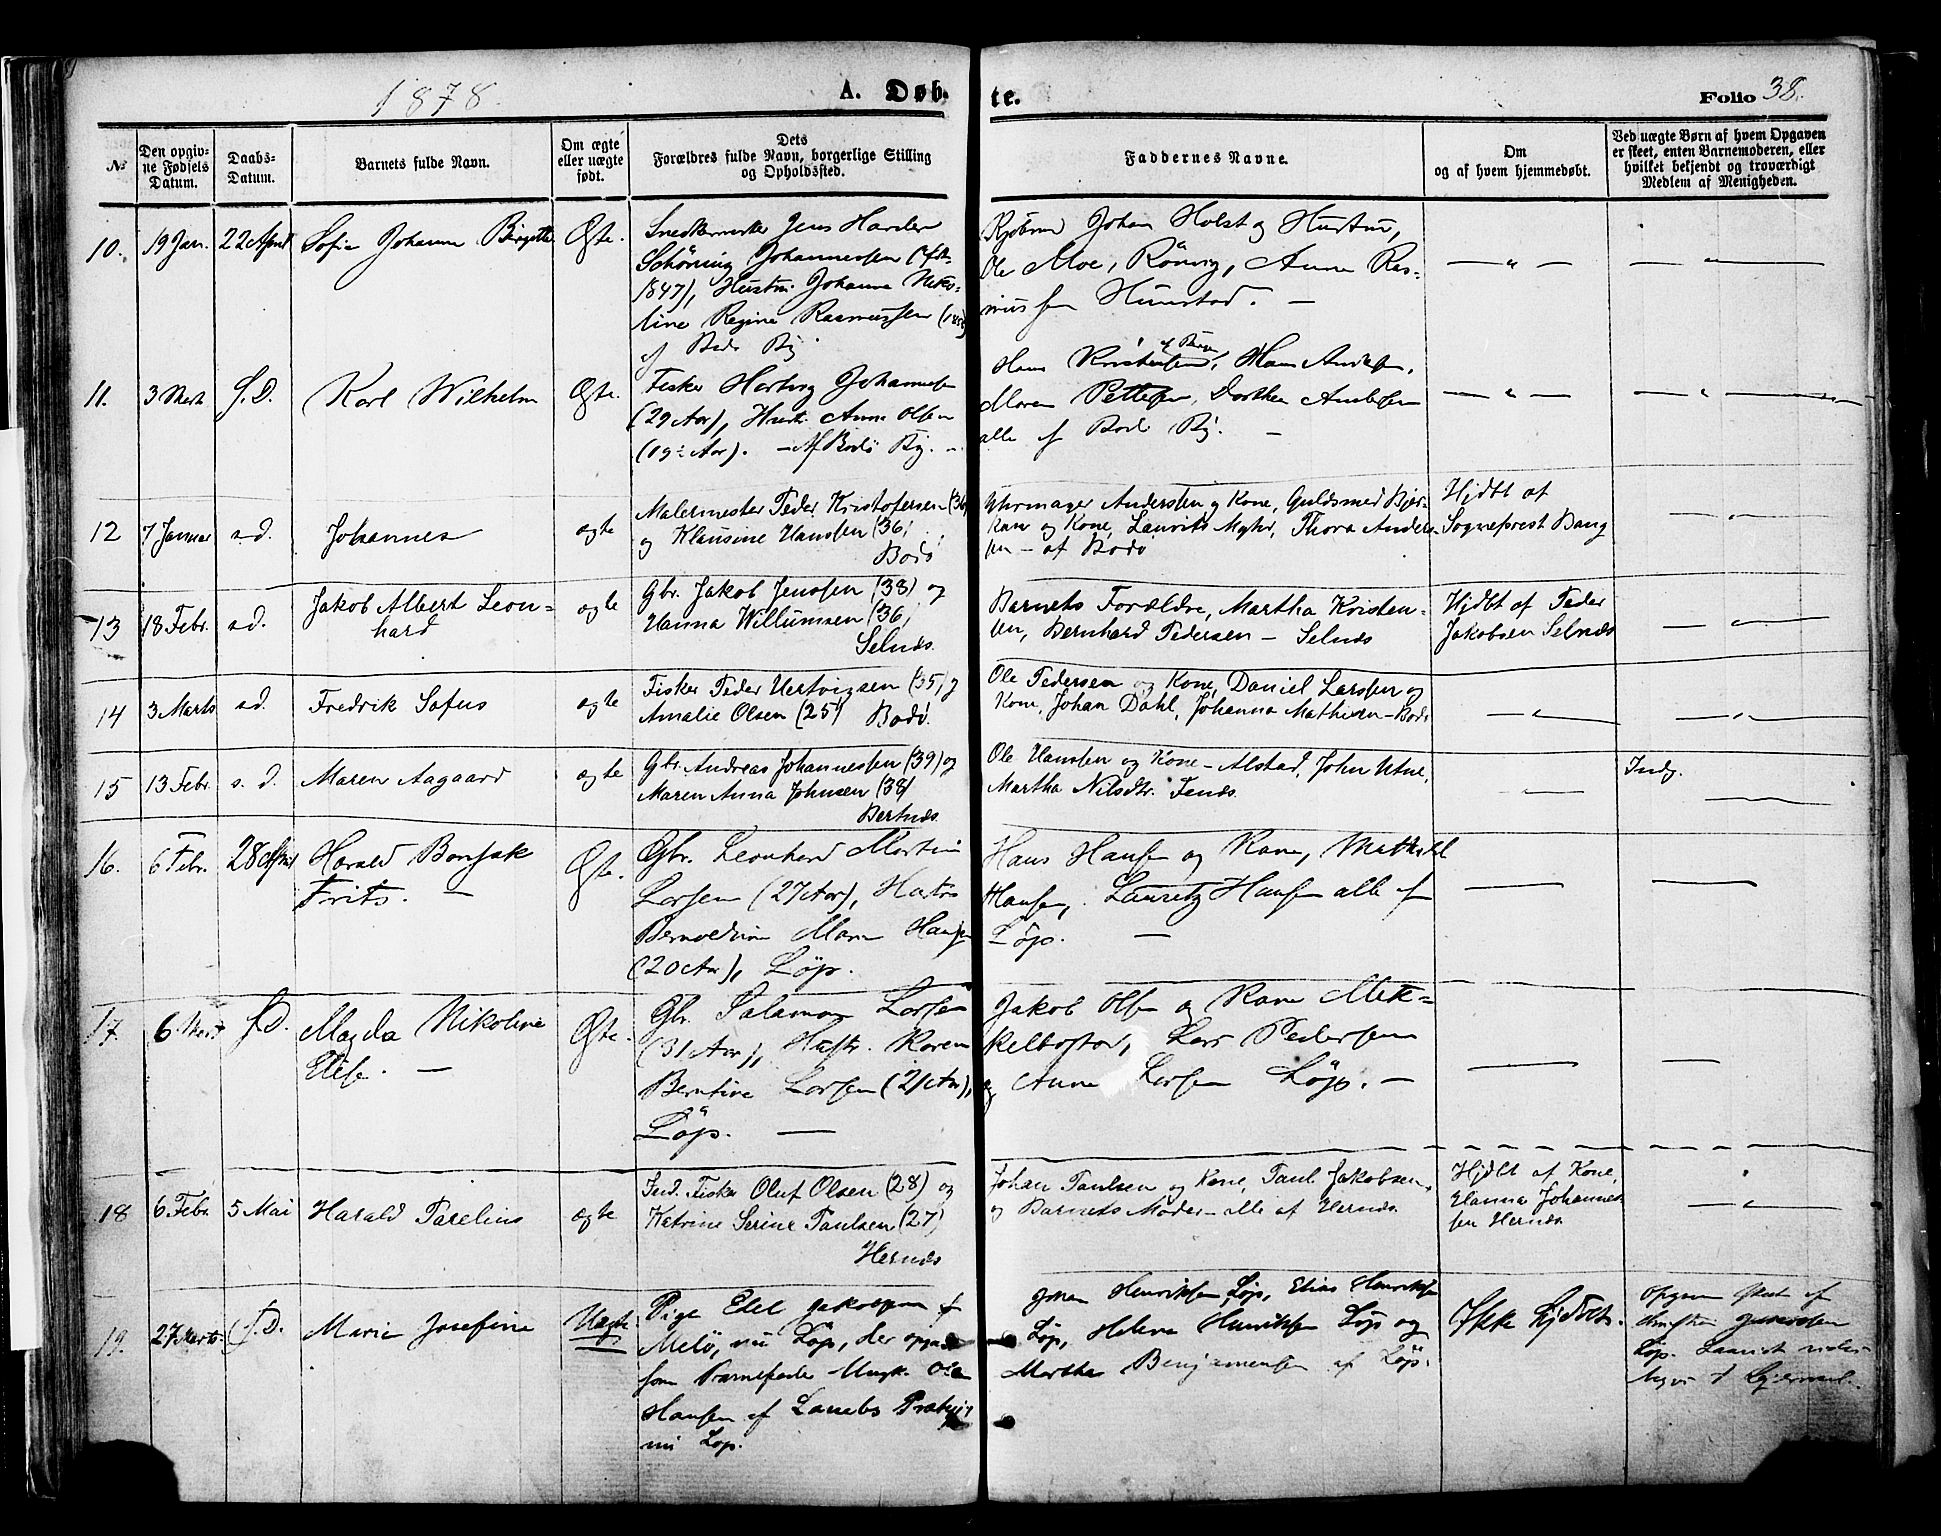 1878.
A. Døb-
te.
Folio 38.
№
Den opgiv-
ne Fødsels
Datum.
Daabs-
Datum.
Barnets fulde Navn.
Om ægte
eller uægte
født.
Dets
Forældres fulde Navn, borgerlige Stilling
og Opholdssted.
Faddernes Navne.
Om
og af hvem hjemmedøbt.
Ved uægte Børn af hvem Opgaven
er skeet, enten Barnemoderen, eller
hvilket bekjendt og troværdigt
Medlem af Menigheden.
10. 19 Jan. 22 April Sofie Johanne Birgitte Ægte.
Jens Harder
Schöning Johannessen
1847), Hustru Johanna
Regine Rasmussen
af Bodø By
Johan Holst og Hustru,
Ole Moe, Rönvig, Anne Ras-
mussen Hunstad. —
— " —
— " —
11. 3 Mart S. D. Karl Wilhelm Ægte.
Fisker Hartvig Johannesen
(29 Aar), Hustr. Anne Olsen
(19 Aar). — Af Bodö By. —
Hans Kristensen, af Bergen Hans Andersen,
Maren Pettersen, Dorthea Andersen
alle af Bodö By. —
— " —
— " —
12 7 Januar s.d. Johannes ægte
Malermester Peder Kristofersen (36)
og Klausine Hanssen (36,
Bodö
Uhrmager Anderssen og Kone, Guldsmed Bjer-
kan og Kone, Laurits Myhr, Thora Anders-
sen — af Bodö
Hjdbt af
Sogneprest Bang
— " —
13 18 Febr. s.d. Jakob Albert Leon-
hard
ægte
Gbr. Jakob Jenssen (38) og
Hanna Willumsen (36,
Selnæs.
Barnets Forældre, Martha Kristen-
sen, Bernhard Pedersen — Selnæs
Hjdbt af Peder
Jakobsen Selnæs
— " —
14 3 Marts s.d. Fredrik Sofus ægte
Fisker Peder Hertvigsen (35) og
Amalie Olsen (25) Bodö.
Ole Pedersen og Kone, Daniel Larssen og
Kone, Johan Dahl, Johanna Mathisen — Bodö
— " —
— " —
15 13 Febr. s. d. Maren Aagaard ægte
Gbr. Andreas Johannessen (39) og
Maren Anna Johnsen (38)
Bertnæs.
Ole Hanssen og Kone — Alstad, John Utne,
Martha Nilsdtr. Fenæs.
— " —
Indg.
16. 6 Febr. 28 April Harald Bonsak
Frits. —
Ægte.
Gbr. Leonhard Martin
Larsen (27 Aar), Hustr.
Marie Hansen
(20 Aar), Löp.
Hans Hansen og Kone, Mathild
Hansen, Lauretz Hansen alle af
Löp. —
17. 6 Mart S.D. Magda Nikoline
Elise. —
Ægte.
Gbr. Salamon Larsen
(31 Aar), Hustr. Karen
Berntine Larsen (21 Aar),
Löp. —
Jakob Olsen og Kone Mek-
kelbostad, Lars Pedersen
og Anne Larsen Löp. —
18 6 Febr. 5 Mai Harald Parelius ægte
Ind. Fisker Oluf Olsen (28) og
Katrine Serine Paulsen (27)
Hernæs
Johan Paulsen og Kone, Paul Jakobsen,
og Barnets Moder — alle af Hernæs.
Hjdbt af Kone,
Hanna Johannes-
sen Hernæs
— " —
19. 27 Marts. S.D. Marie Josefine Uægte.
Pige Elel Jakobsen
Melö, nu Löp, der opgav
som Barnefader Ungk. Ole
Hansen af
nu Löp.
Johan Henriksen Löp, Elias Henriksen
Löp, Helene Henriksen Löp og
Marthe Benjamensen af Löp.
Ikke Hjdöbt.
Opgaven skeet af
Löp.